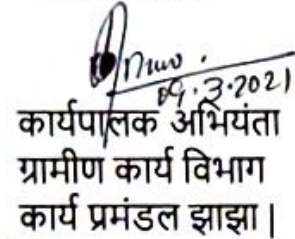 09.3.2021
कार्यपालक अभियंता
ग्रामीण कार्य विभाग
कार्य प्रमंडल झाझा|